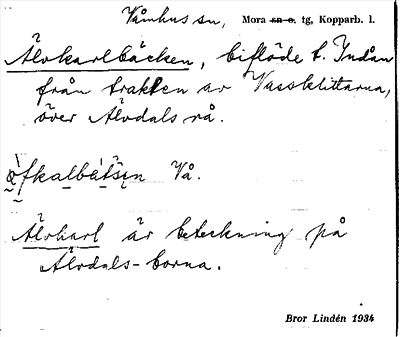 Våmhus sn, Mora s̶n̶ ̶o̶. tg, Kopparb. l.
Älvkarlbäcken, biflöde t. Indån
från trakten av Vassklittarna,
över Älvdals rå.
Vå.
Älvkarl är beteckning på
Älvdals-borna.
Bror Lindén 1934